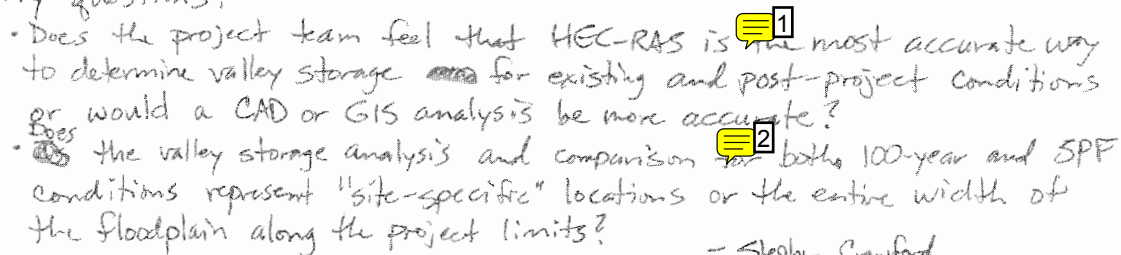 my questions:
• Does the project team feel that HEC-RAS is the most accurate way 1
to determine valley storage for existing and post-project conditions
or would a CAD or GIS analysis be more accurate?
• Does the valley storage analysis and comparison for both 100-year and SPF 2
conditions represent "site-specific" locations or the entire width of
the floodplain along the project limits?
- Stephen Crawford